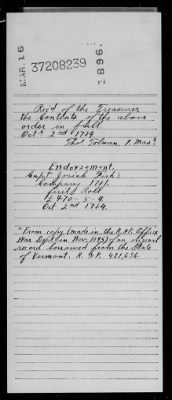 MAR. 16
37208239
2896.
Rec'd of the Treasurer
the Contents of the above
order in full
Oct. 2nd 1784
Thos Tolman P. Mas.
Endorsement,
Capt. Josiah Fish's
Company 1781.
First Roll
£470-5-9
Oct 2nd 1784.
"From copy (made in the R. & P. Office,
War Dept. in Nov. 1895) of an original
record borrowed from the State
of Vermont. R. & P. 421,636.